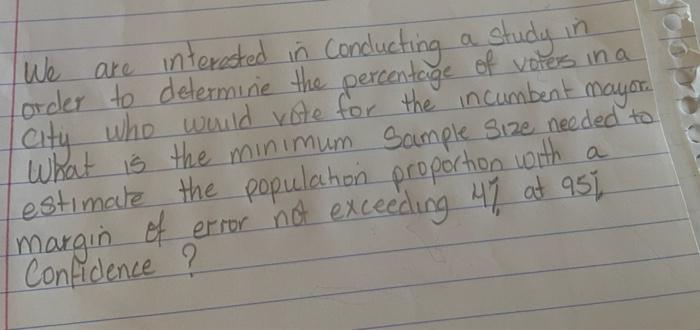 We are interested in conducting a study in
order to determine the percentage of voters in a
city who would vote for the incumbent mayor.
What is the minimum sample size needed to
estimate the population proportion with a
margin of error not exceeding 4% at 95%
Confidence ?